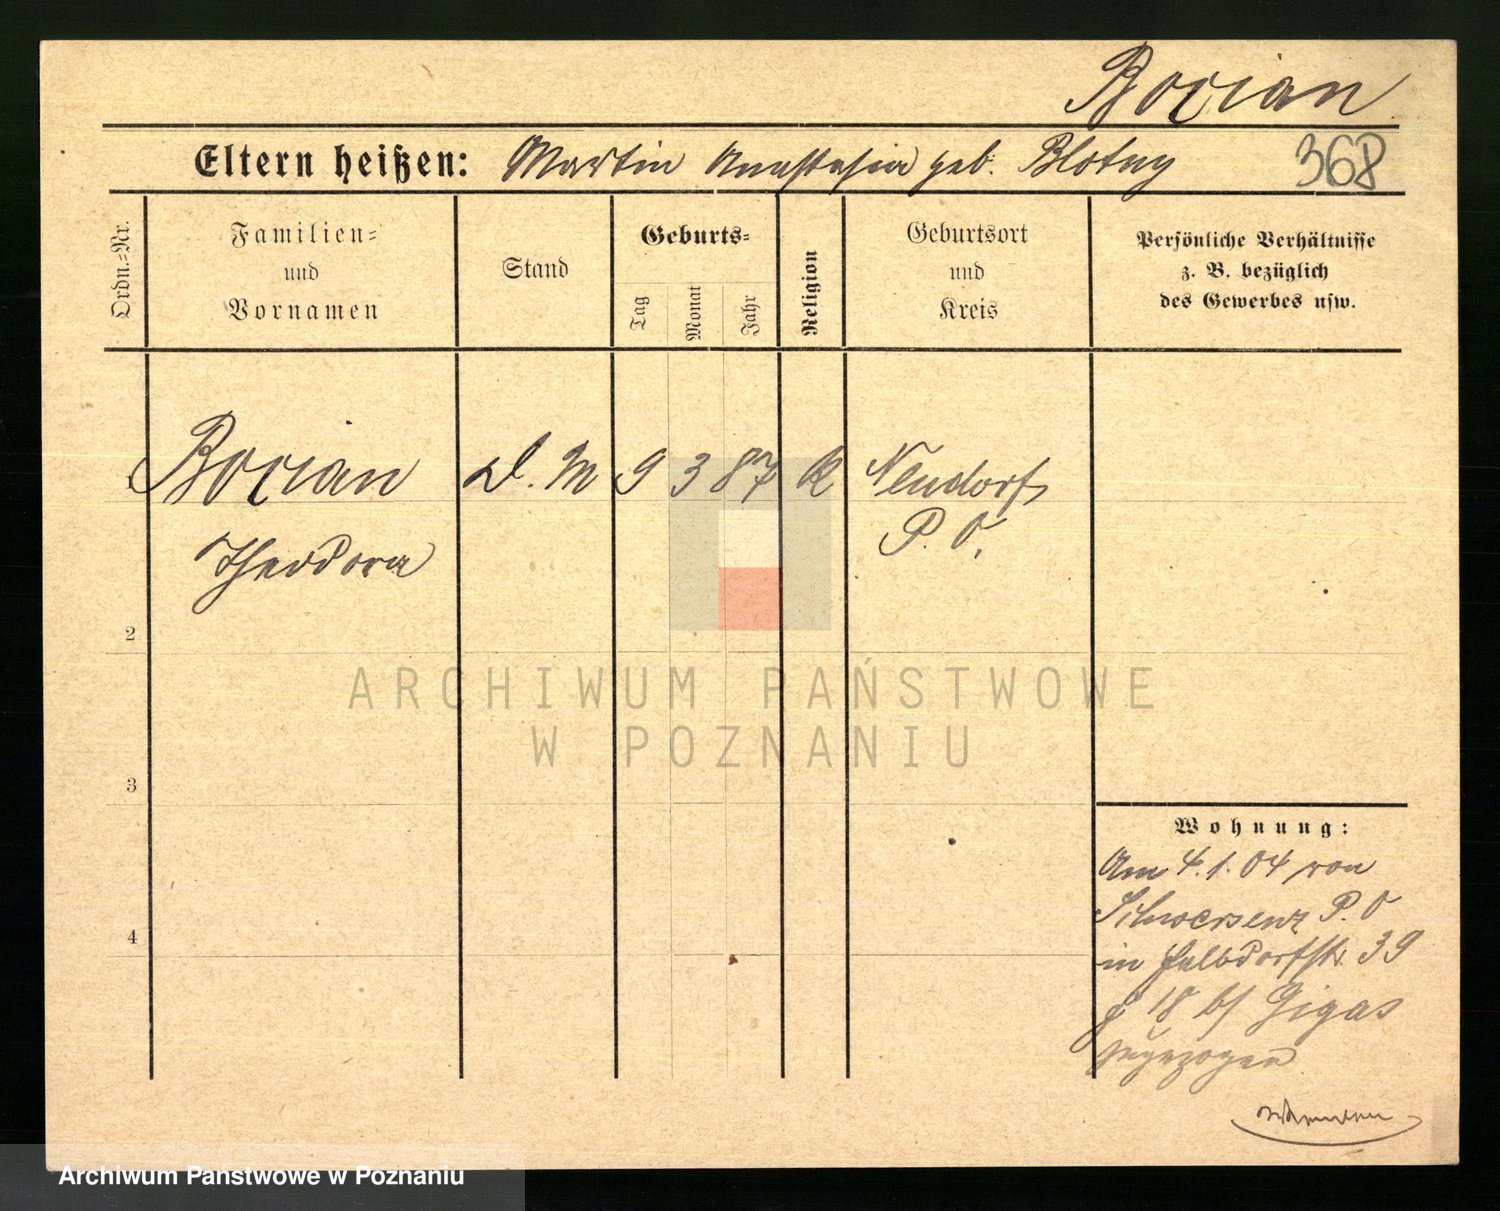 Bocian
Eltern heißen: Martin Anastasia geb. Blotny 368
Ordn.-Nr.
Familien-
und
Vornamen
Stand
Geburts-
Tag
Monat
Jahr
Religion
Geburtsort
und
Kreis
Persönliche Verhältnisse
z. B. bezüglich
des Gewerbes usw.
1 Bocian D. M 9 3 87 K Neudorf
Theodora P. O.
2
3
4
Wohnung:
Am 4.1.04 von
Schwersenz P. O
in Halbdorfstr. 39
g 18 b/ Gigas
zugezogen
ARCHIWUM PAŃSTWOWE
W POZNANIU
Archiwum Państwowe w Poznaniu